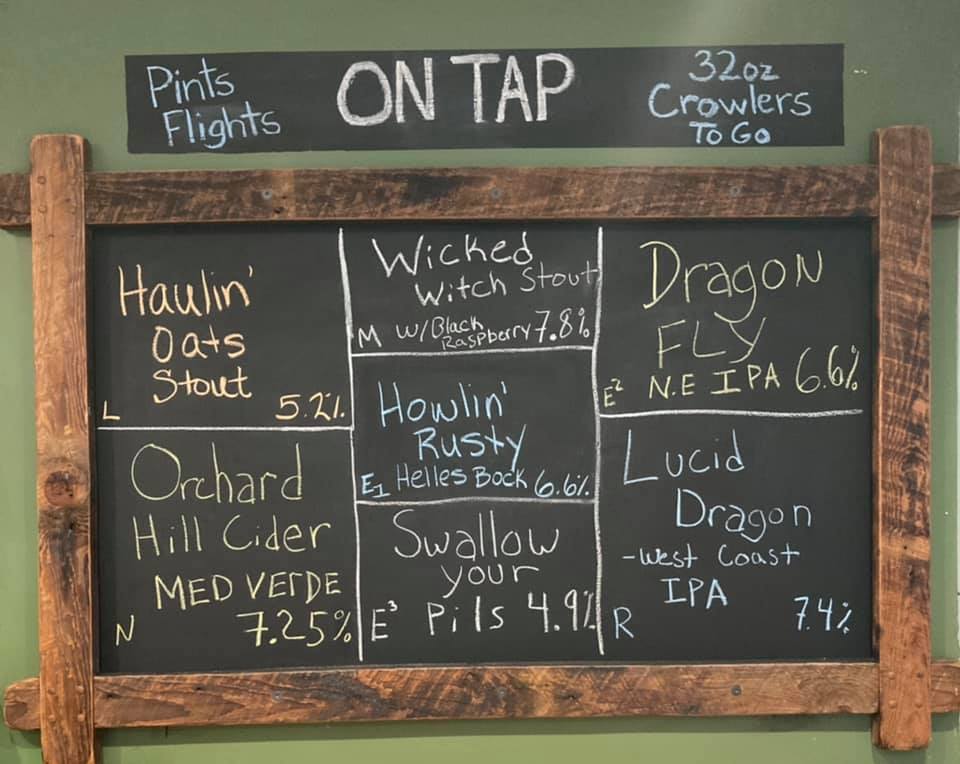 Pints
Flights
ON TAP
32oz
Crowlers
To Go
Haulin'
Oats
Stout
L 5.2%
Orchard
Hill Cider
MED VERDE
N 7.25%
Wicked
Witch Stout
M w/Black
Raspberry 7.8%
Howlin'
Rusty
E1 Helles Bock 6.6%
Swallow
your
E³ Pils 4.9%
Dragon
FLY
E² N.E IPA 6.6%
Lucid
Dragon
-West Coast
IPA
R 7.4%